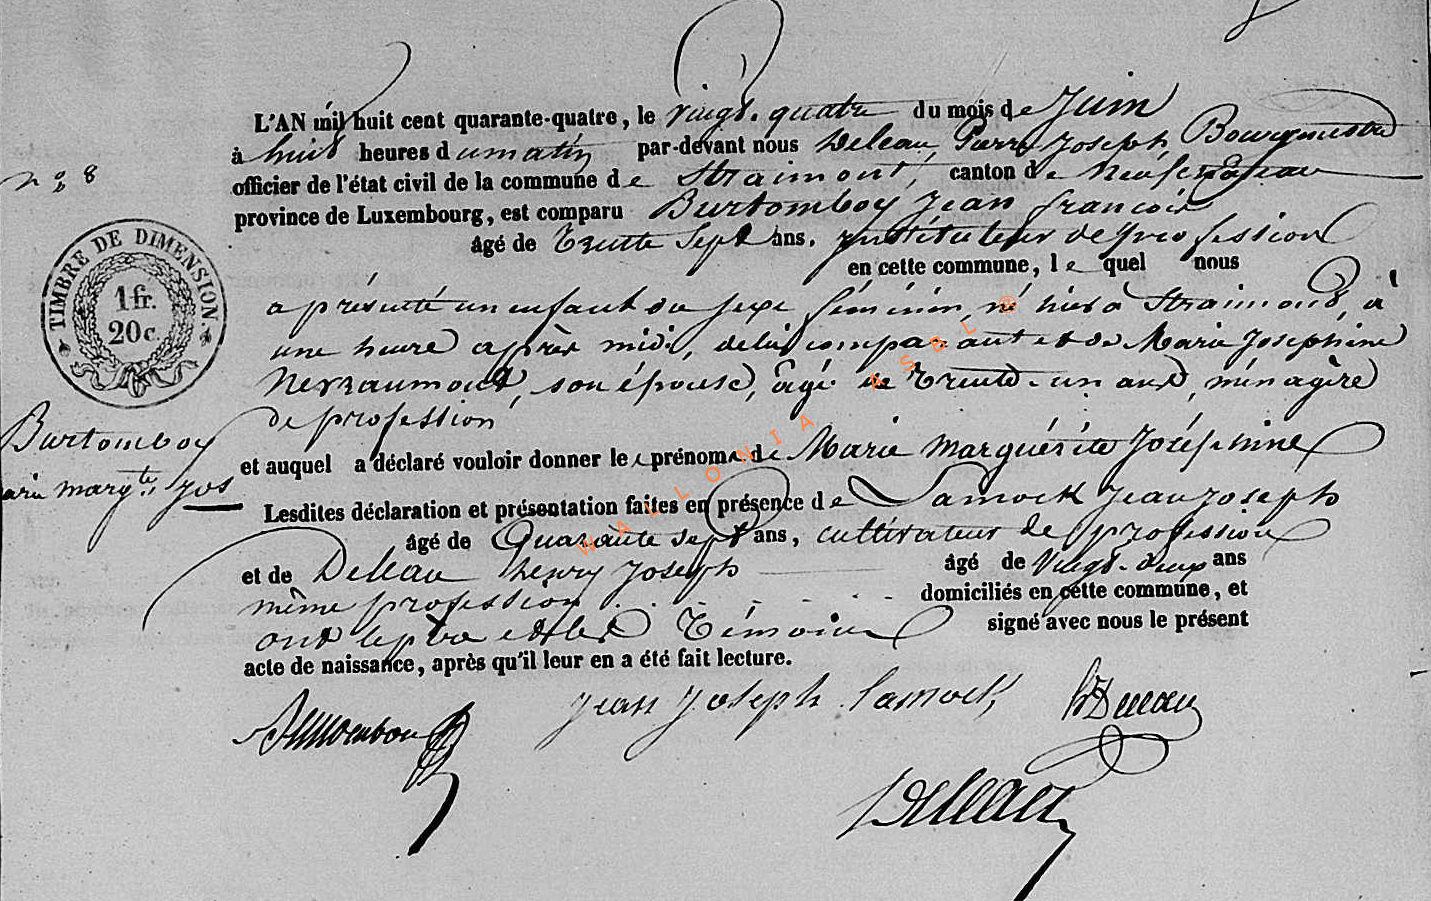 L'AN mil huit cent quarante-quatre, le vingt-quatre du mois de Juin
à huit heures du matin par-devant nous Deleau, Pierre Joseph, Bourgmestre
n° 8
officier de l'état civil de la commune de Straimont, canton de Neufchateau
province de Luxembourg, est comparu Burtomboy Jean françois
âgé de trente sept ans, instituteur de profession
en cette commune, lequel nous
TIMBRE DE DIMENSION.
1 fr.
20 c.
a présenté un enfant du sexe féminin, né hier à Straimont, à
une heure après midi, de lui comparant et de Marie Josephine
son épouse, agé de trente-un ans, ménagère
de profession
Burtomboy
arie Margte Jos
et auquel a déclaré vouloir donner les prénoms de Marie Marguérite Joséphine
Lesdites déclaration et présentation faites en présence de Lamock Jean Joseph
âgé de Quarante sept ans, cultivateur de profession
et de Deleau henry Joseph âgé de vingt-deux ans
même profession domiciliés en cette commune, et
ont le père et les Témoins signé avec nous le présent
acte de naissance, après qu'il leur en a été fait lecture.
Jean Joseph Lamock,
Deleau
Deleau
WALLONIA ASBL ®